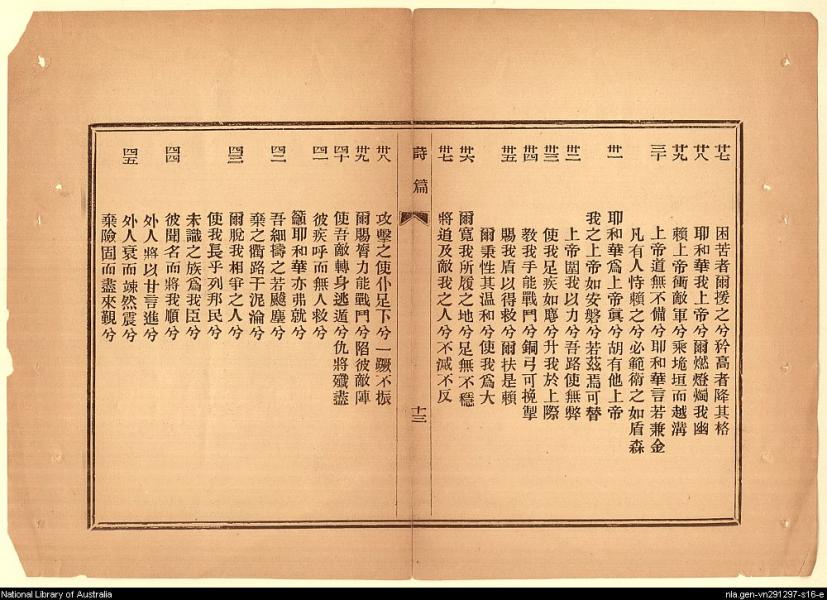 廿七 困苦者爾援之兮矜高者降其格
廿八 耶和華我上帝兮爾燃燈燭我幽
廿九 賴上帝衝敵軍兮乘垝垣而越溝
三十 上帝道無不備兮耶和華言若兼金
凡有人恃賴之兮必範衛之如盾森
卅一 耶和華爲上帝眞兮胡有他上帝
我之上帝如安磐兮若茲焉可替
卅二 上帝圍我以力兮吾路使無弊
卅三 使我足疾如麀兮升我於上際
卅四 教我手能戰鬥兮銅弓可挽掣
卅五 賜我盾以得救兮爾扶是賴
爾秉性其温和兮使我爲大
卅六 爾寬我所履之地兮足無不穩
卅七 將追及敵我之人兮不滅不反
詩篇
十三
卅八 攻擊之使仆足下兮一蹶不振
卅九 爾賜膂力能戰鬥兮陷彼敵陣
四十 使吾敵轉身逃遁兮仇將殲盡
四一 彼疾呼而無人救兮
籲耶和華亦弗就兮
四二 吾細擣之若颷塵兮
棄之衢路于泥淪兮
四三 爾脫我相爭之人兮
使我長乎列邦民兮
未識之族爲我臣兮
四四 彼聞名而將我順兮
外人將以甘言進兮
四五 外人衰而竦然震兮
棄險固而盡來覲兮
National Library of Australia
nla.gen-vn291297-s16-e